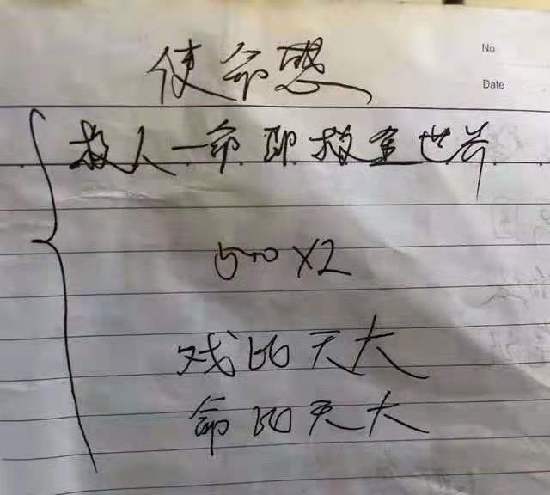 No
使命感
Date
救人一命即救全世界
500X2
戏比天大
命比天大